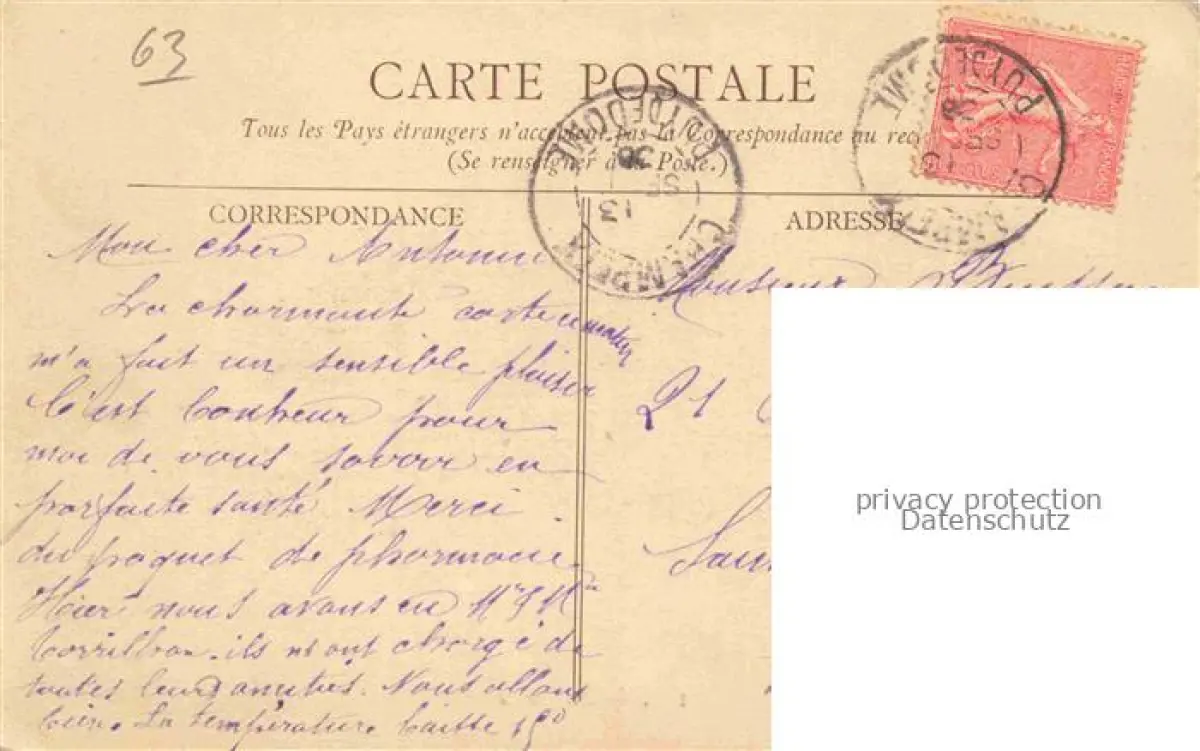 63
CARTE POSTALE
Tous les Pays étrangers n'acceptent pas la Correspondance au
(Se renseigner à la Poste.)
CORRESPONDANCE
ADRESSE
PUY DE DOME
13
PUY DE DOME
13
Mon cher Antonin
La charmante carte
m'a fait un sensible plaisir
C'est bonheur pour
moi de vous savoir en
parfaite santé Merci
du paquet de pharmacie
Hier nous avons eu Mr & Me
ils m'ont chargé de
toutes leurs amitiés. Nous allons
bien. La température baisse 15°
Monsieur
21
privacy protection
Datenschutz